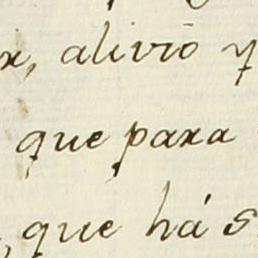 alivio
que para
que há